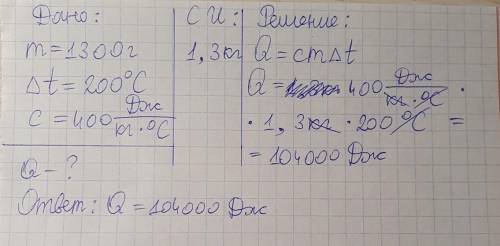 Дано:
m=1300г
Δt=200°C
c=400 Дж/кг·°C
Q-?
СИ:
1,3кг
Решение:
Q=cmΔt
Q= 400 Дж/кг·°C ·
· 1,3кг · 200°C =
= 104000 Дж
Ответ: Q=104000 Дж